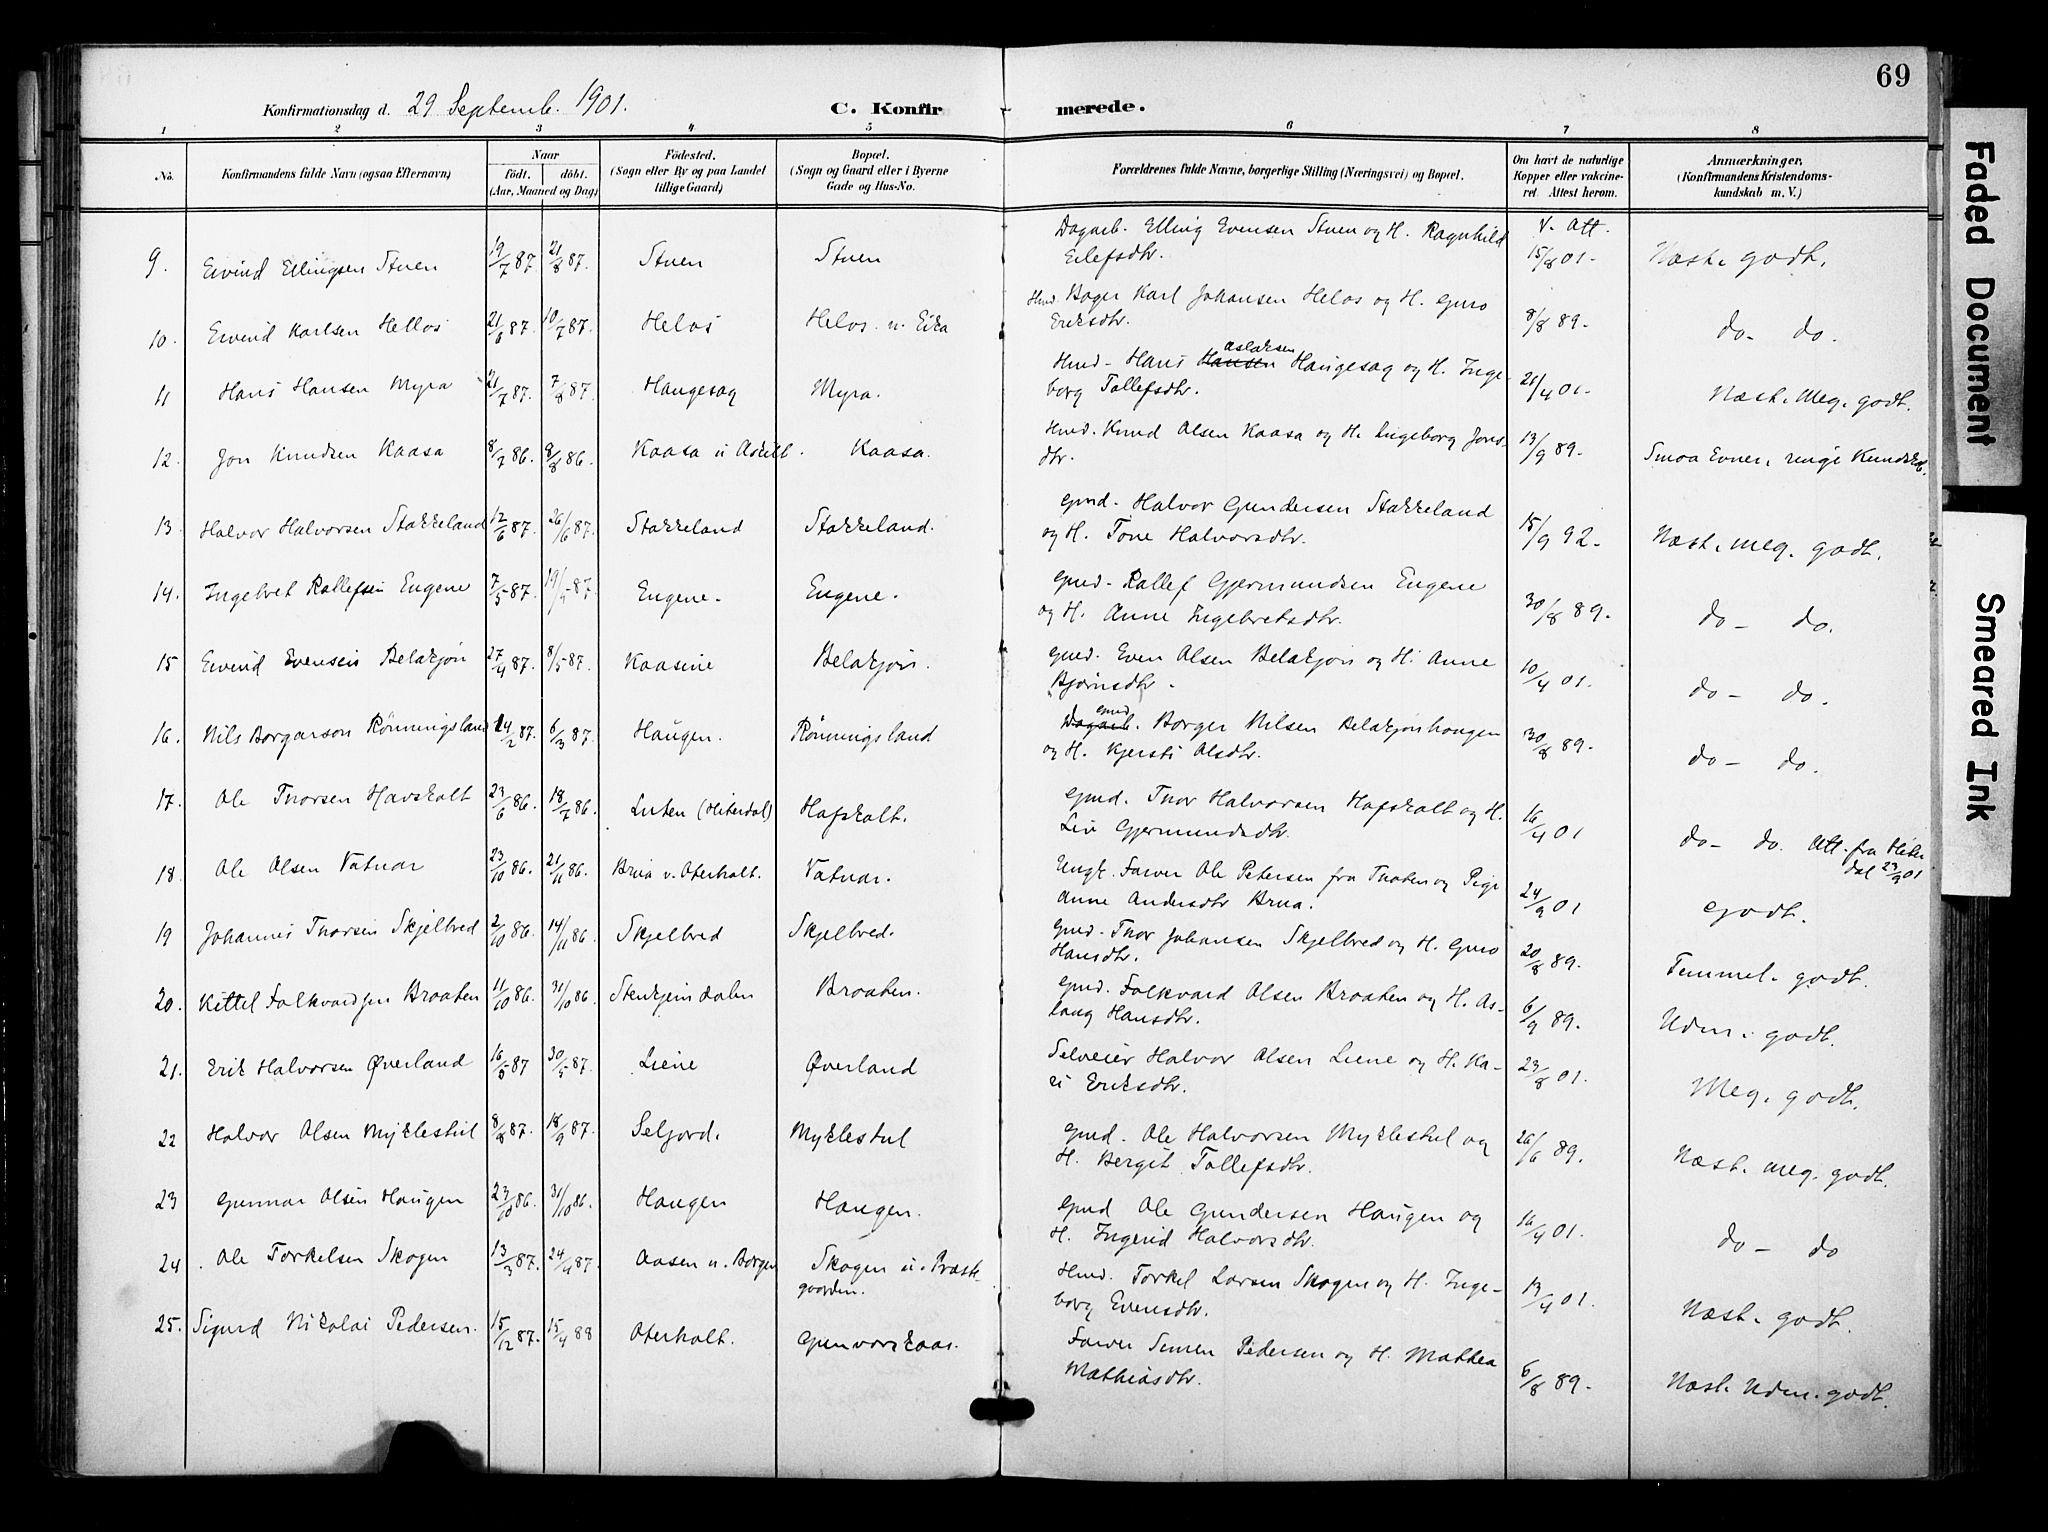 69
Konfirmationsdag d. 29 Septemb. 1901.
C. Konfirmerede.
1 2 3 4 5 6 7 8
No.
Konfirmandens fulde Navn (ogsaa Efternavn)
Naar
født. døbt.
(Aar, Maaned og Dag)
Fødested.
(Sogn eller By og paa Landet
tillige Gaard)
Bopæl.
(Sogn og Gaard eller i Byerne
Gade og Hus-No.
Forældrenes fulde Navne, borgerlige Stilling (Næringsvei) og Bopæl.
Om havt de naturlige
Kopper eller vakcine-
ret. Attest herom.
Anmærkninger,
(Konfirmandens Kristendoms-
kundskab m. V.)
9. Eivind Ellingsen Stuen 19/7 87. 21/8 87. Stuen Stuen Dagarb. Elling Evensen Stuen og H. Ragnhild V. Att.
Eilefsdtr. 15/8 01. Næst. godt.
10. Eivind Karlsen Hellos 21/6 87. 10/7 87. Helos Helos u. Eika Hmd. Bager Karl Johansen Helos og H. Guro
Eriksdtr. 8/8 89. do. do.
11 Hans Hansen Myra 21/7 87. 7/8 87. Haugesag Myra. Hmd. Hans Hansen Aslaksen Haugesag og H. Inge-
borg Tollefsdtr. 21/4 01. Næst. Meg. godt.
12. Jon Knudsen Kaasa 8/7 86. 8/8 86. Kaasa u Askilt. Kaasa. Hmd. Knud Olsen Kaasa og H. Ingeborg Jons-
dtr. 13/9 89. Smaa Evner, ringe Kundsk.
13. Halvor Halvorsen Stakkeland 12/6 87. 26/6 87. Stakkeland Stakkeland. Gmd. Halvor Gundersen Stakkeland
og H. Tone Halvorsdtr. 15/9 92. Næst. meg. godt.
14. Ingebret Rollefsen Eugene 7/5 87. 19/5 87. Eugene. Eugene. Gmd. Rollef Gjermundsen Eugene
og H. Anne Ingebretsdtr. 30/8 89. do do.
15 Eivind Evensen Belaksjön 27/4 87. 8/5 87. Kaasine Belaksjön. Gmd. Even Olsen Belaksjön og H. Anne
Bjørnsdtr. 10/4 01. do do.
16. Nils Borgarson Rönningsland 24/2 87. 6/3 87. Haugen. Rönningsland Dagarb. Gmd. Borger Nilsen Belaksjönhaugen
og H. Kjersti Olsdtr. 30/8 89. do do.
17. Ole Thorsen Havskolt 23/6 86. 18/7 86. Luten (Hiterdal) Hafskolt. Gmd. Thor Halvorsen Hafskolt og H.
Liv Gjermundsdtr. 16/4 01 do do. Att. fra Hiter
dal 23/9 01
18. Ole Olsen Vatnar 23/10 86. 21/11 86. Brua v. Oterholt. Vatnar. Ungk. Farver Ole Petersen fra Tveten og Pige
Anne Andersdtr Brua. 24/9 01 Godt.
19 Johannes Thorsen Skjelbred 2/10 86. 14/11 86. Skjelbred Skjelbred. Gmd. Thor Johansen Skjelbred og H. Guro
Hansdtr. 20/8 89. Temmel. godt.
20. Kittel Folkvardsen Braaten 11/10 86. 31/10 86. Stenkjens dalen Braaten. Gmd. Folkvard Olsen Braaten og H. As-
laug Hansdtr. 6/9 89. Udm. godt.
21. Erik Halvorsen Øverland 16/5 87 30/5 87. Liene Øverland Selveier Halvor Olsen Liene og H. Ka-
ri Eriksdtr. 23/8 01. Meg. godt.
22 Halvor Olsen Myklestul 8/8 87. 18/9 87. Seljord. Myklestul Gmd. Ole Halvorsen Myklestul og
H. Bergit Tollefsdtr. 26/6 89. Næst. meg. godt.
23 Gunnar Olsen Haugen 23/10 86. 31/10 86. Haugen Haugen. Gmd Ole Gundersen Haugen og
H. Ingerid Halvorsdtr. 16/4 01. do do
24. Ole Torkelsen Skogen 13/3 87. 24/4 87. Aasen u. Borgen Skogen u. Præste-
gaarden. Hmd. Torkel Larsen Skogen og H. Inge-
borg Evensdtr. 13/4 01. Næst. godt.
25. Sigurd Nikolai Pedersen. 15/12 87. 15/4 88 Oterholt. Gunvorskaas. Farver Simen Pedersen og H. Mathea
Mathiasdtr. 6/8 89. Næst. Udm. godt.
Faded Document
Smeared Ink